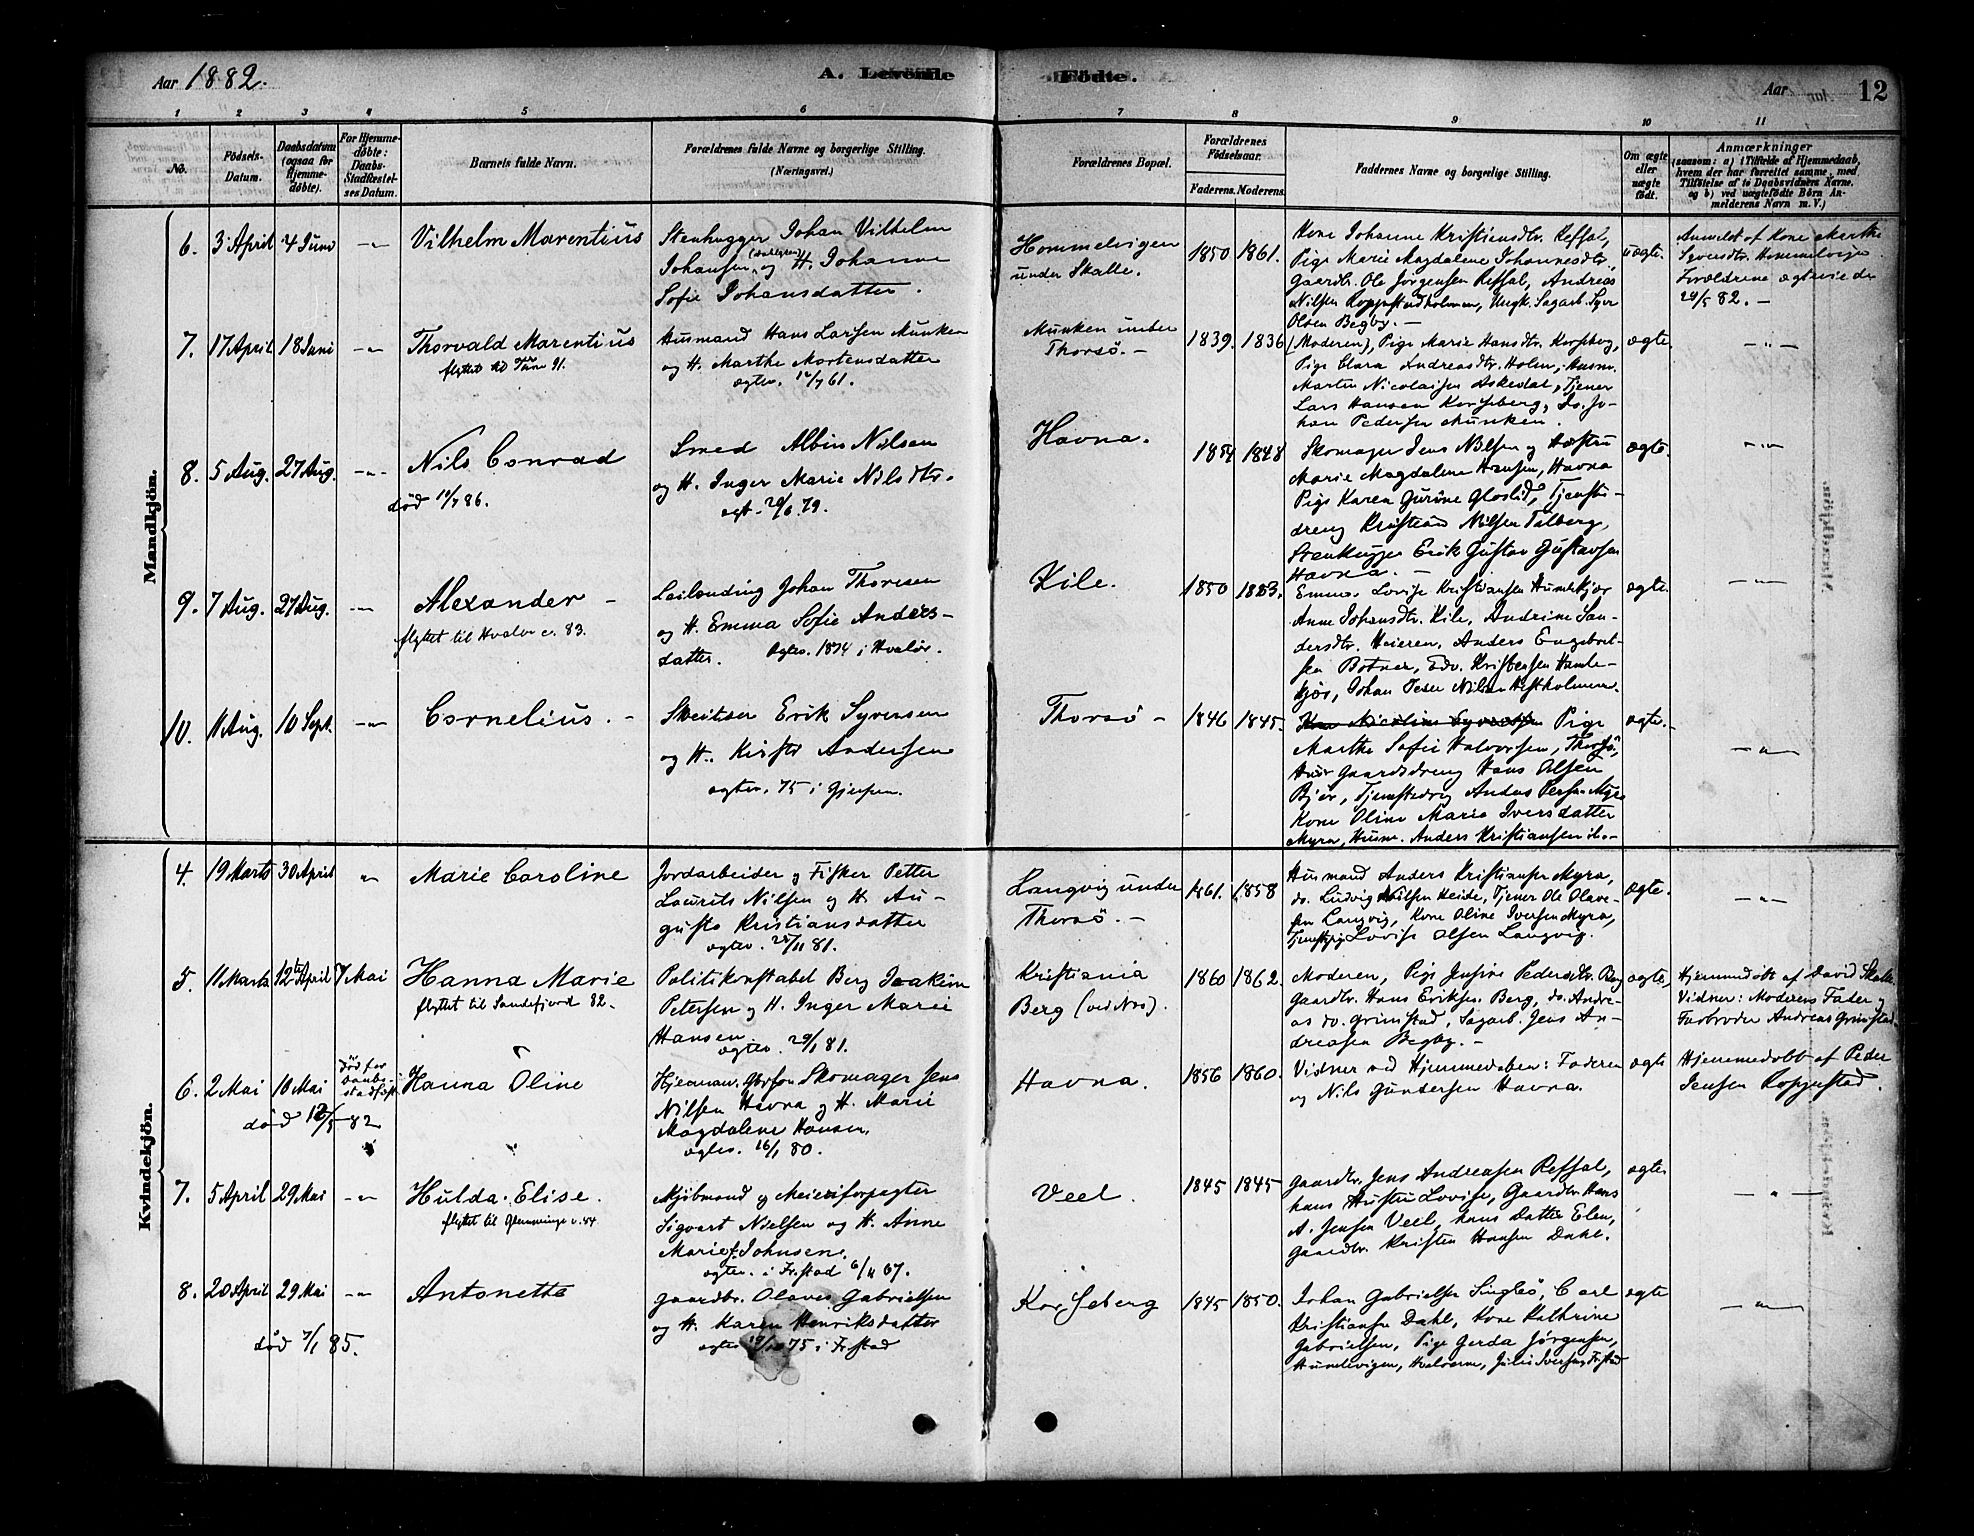 Aar 1882.
A. Levende Fødte.
Aar 12
1 2 3 4 5 6 7 8 9 10 11
No.
Fødsels-
Datum.
Daabsdatum
(ogsaa for
Hjemme-
døbte).
For Hjemme-
døbte:
Daabs-
Stadfæstel-
ses Datum.
Barnets fulde Navn.
Forældrenes fulde Navne og borgerlige Stilling.
(Næringsvei.)
Forældrenes Bopæl.
Forældrenes
Fødselsaar.
Faderens. Moderens.
Faddernes Navne og borgerlige Stilling.
Om ægte
eller
uægte
født.
Anmærkninger
(saasom: a) i Tilfælde af Hjemmedaab,
hvem der har forrettet samme, med
Tilføielse af to Daabsvidners Navne,
og b) ved uægtefødte Børn An-
melderens Navn m. V.)
Mandkjön.
6. 3 April 4 Juni -"- Vilhelm Marentius
Stenhugger Johan Vilhelm
Johansen og H. Johanne
Sofie Johansdatter.
Hommelvigen
under Skalle.
1850 1861.
Kone Johanne Kristiansdtr. Refsal,
Pige Marie Magdalene Johannesdtr.
Gaardbr. Ole Jørgensen Refsal, Andreas
Nilsen Roppestadholmen, Ungk. Sagarb. Syver
Olsen Begby. -
uægte.
Anmeldt af Kone Marthe
Syversdtr. Hommelvigen
Forældrene ægteviede
29/5 82. -
7. 17 April 18 Juni -"- Thorvald Marentius
flyttet til Tune 91.
Husmand Hans Larsen Munken
og H. Marthe Mortensdatter
ægtev. 12/7 61.
Munken under
Thorsø. -
1839. 1836
(Moderen), Pige Marie Hansdtr. Korseberg,
Pige Clara Andreasdtr. Holm, Husm.
Martin Nicolaisen Askedal, Tjener
Lars Hansen Korseberg, Do. Jo-
han Pedersen Munken.
ægte.
-"-
8. 5 Aug. 27 Aug. -"- Nils Conrad
død 19/7 86.
Smed Albin Nilsen
og H. Inger Marie Nilsdtr.
ægt. 29/6 79.
Havna.
1854 1848
Skomager Jens Nilsen og Hustru
Marie Magdalene Hansen, Havna
Pige Karen Gurine Gloslid, Tjeneste-
dreng Kristian Nilsen Tilberg,
Stenhugger Erik Gustav Gustavsen
Havna. -
ægte.
-"-
9. 7 Aug. 27 Aug. -"- Alexander -
flyttet til Hvaler c. 83.
Leilending Johan Thoresen
og H. Emma Sofie Anders-
datter. ægtev. 1874 i Hvalør.
Kile.
1850 1853.
Emma Lovise Kristiansen Humlekjær
Anne Johansdtr. Kile, Andrine San-
dersdtr. Heieren, Anders Engebret-
sen Botner, Edv. Kristensen Humle-
kjær, Johan Peder Nilsen Hestholmen.
ægte.
-"-
10. 11 Aug. 10 Sept. -"- Cornelius. -
Sveitser Erik Syversen
og H. Kirsti Andersen
ægtev. 75 i Gjerpen.
Thorsø -
1846 1845.
Kone Nicoline Syversen Pige
Marthe Sofie Halvorsen, Thorsø,
Gaardsdreng Hans Olsen
Bjør, Tjenestedrg Anders Persen Myra
Kone Oline Marie Iversdatter
Myra, Husm. Anders Kristiansen ibd.
ægte.
-"-
Kvindekjön.
4. 19 Marts 30 April " Marie Caroline
Jordarbeider og Fisker Petter
Laurits Nilsen og H. Au-
gusta Kristiansdatter
ægtev. 28/11 81.
Langvig under
Thorsø. -
1861. 1858
Husmand Anders Kristiansen Myra,
do. Ludvig Nilsen Heide, Tjener Ole Olave-
sen Langvig, Kone Oline Iversen Myra,
Tjenestepig Lovise Olsen Langvig.
ægte.
-"-
5. 11 Marts 12te April 7 Mai Hanna Marie
flyttet til Sandefjord 82.
Politikonstabel Berg Joakim
Petersen og H. Inger Marie
Hansen
ægtev. 29/1 81.
Kristiania
Berg (ved Nos).
1860 1862.
Moderen, Pige Jensine Pedersdtr. Berg
Gaardbr. Hans Eriksen Berg, do. Andre-
as do. Grimstad, Sagarb. Jens An-
dreasen Begby. -
ægte,
Hjemmedøbt af David Skalle.
Vidner: Moderens Fader og
Farbroder Andreas Grimstad.
6. 2 Mai 10 Mai død før
daabs-
stadfæst. Hanna Oline
død 12/5 82
Skomager Jens
Nilsen Havna og H. Marie
Magdalene Hansen.
ægtev. 16/1 80.
Havna.
1856 1860.
Vidner ved Hjemmedaaben: Faderen
og Nils Gundersen Havna.
ægte
Hjemmedøbt af Peder
Jensen Roppestad.
7. 5 April 29 Mai -"- Hulda Elise.
flyttet til Glemminge v. 84
Kjøbmand og Meieriforpagter
Sigvart Nielsen og H. Anne
Marie f. Johnsen.
ægtev. i Fr.stad 6/11 67.
Veel.
1845 1845
Gaardbr. Jens Andreasen Refsal,
hans Hustru Lovise, Gaardbr. Hans
A. Jensen Veel, hans Datter Elen,
Gaardbr. Kristen Hansen Dahl.
ægte
-"-
8. 20 April 29 Mai -"- Antonette
død 7/1 85.
Gaardbr. Olaves Gabrielsen
og H. Karen Henriksdatter
ægtev 19/10 75 i Fr.stad
Korseberg
1845 1850.
Johan Gabrielsen Singlø, Carl
Kristiansen Dahl, Kone Kathrine
Gabrielsen, Pige Gerda Jørgensen,
Hundevigen, Hvalerne, Julie Iversen Fr.stad
ægte
-"-